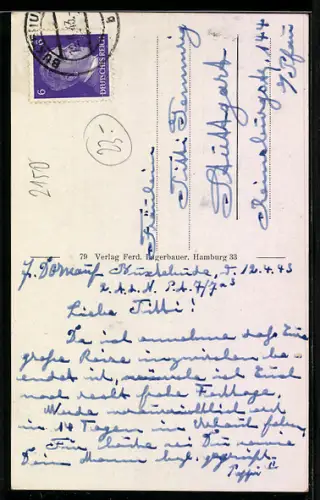 DEUTSCHES REICH
6
2150
23.-
Fräulein
Titti
Stuttgart
144
79 Verlag Ferd. Lagerbauer, Hamburg 33
Buxtehude, d. 12.4.43
Liebe Titti!
Da ich annehme daß Eure
große Reise inzwischen be-
endet ist, wünsche ich Euch
noch recht frohe Festtage.
Werde voraussichtlich erst
in 14 Tagen in Urlaub fahren,
Für heute sei Du sowie
Deine Mama hzl. gegrüßt.